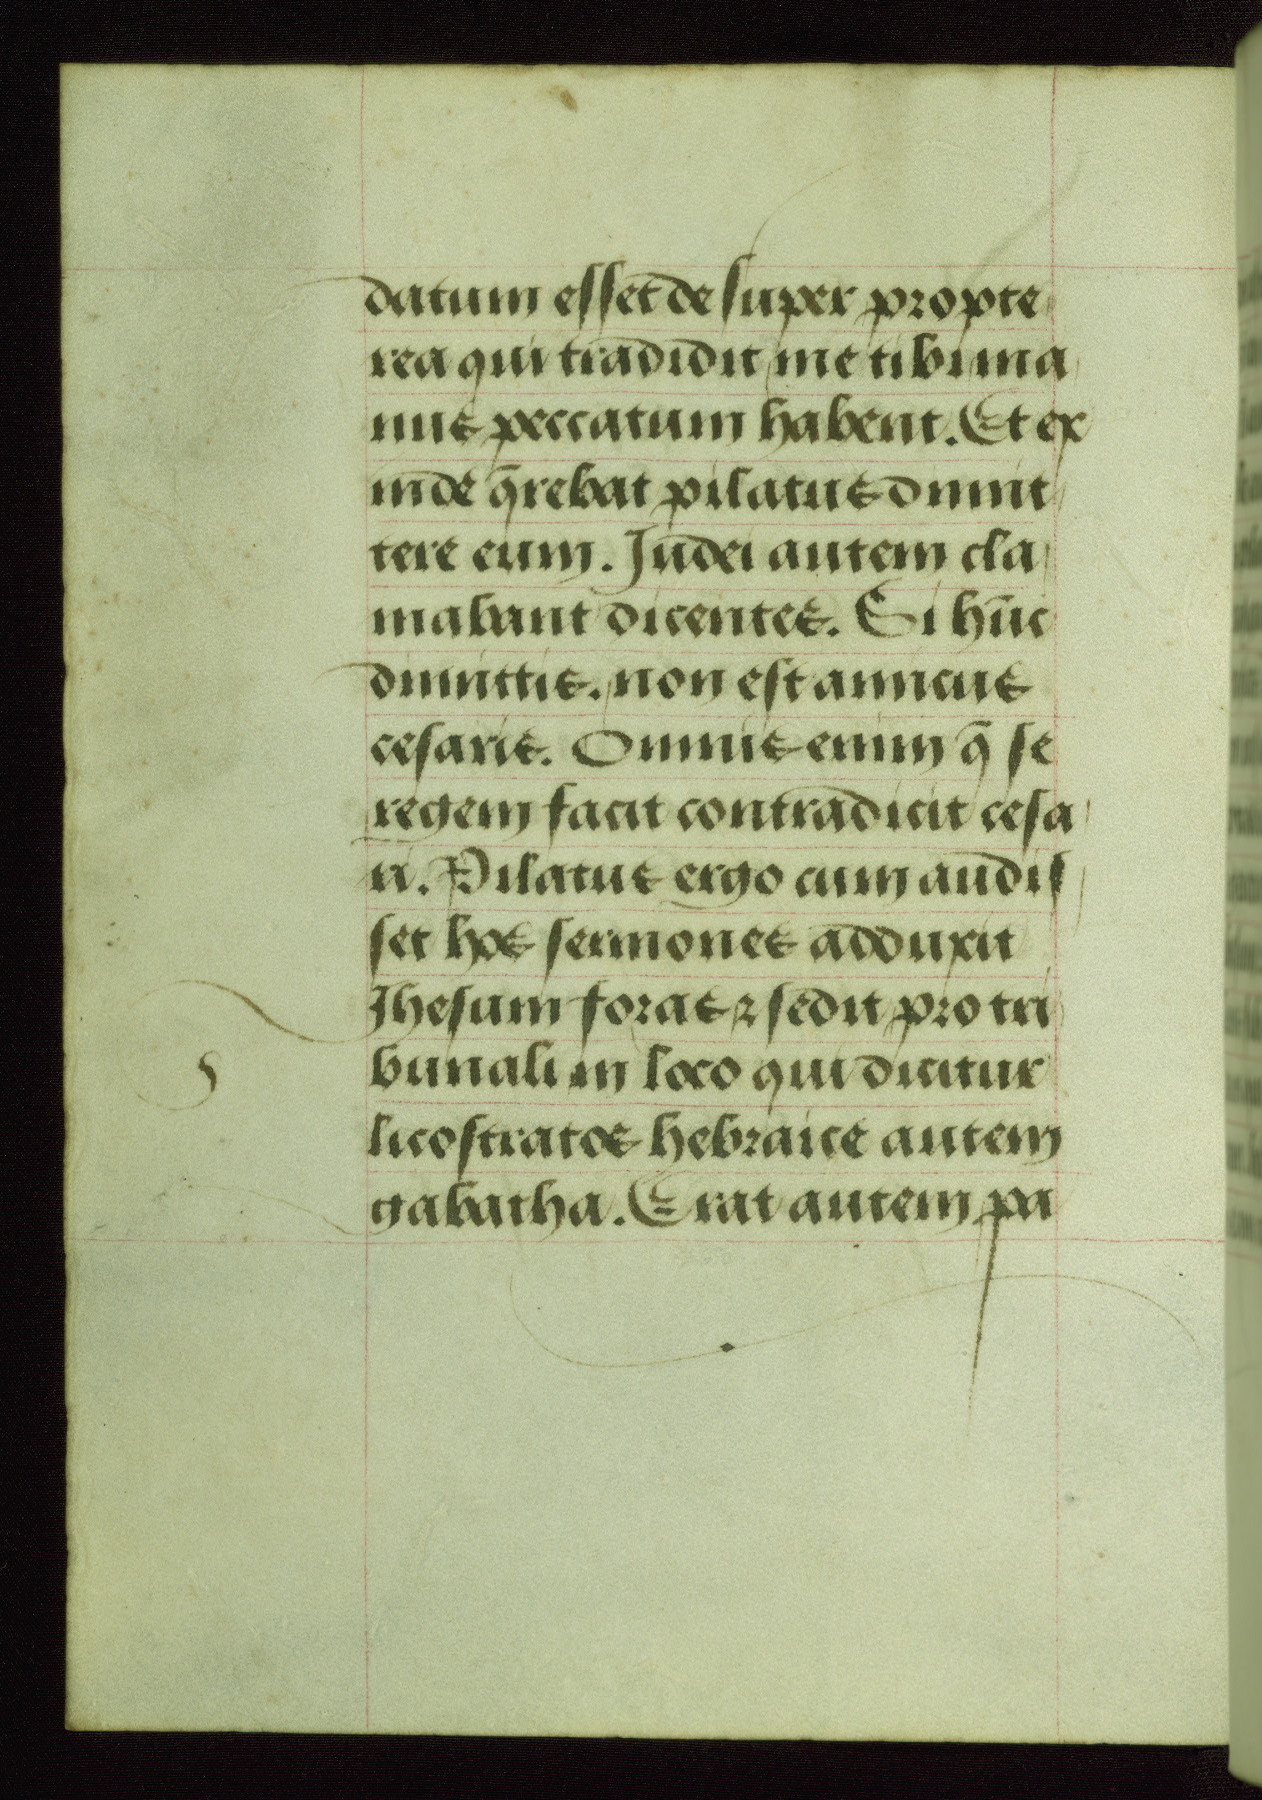 datum esset de super propte
rea qui tradidit me tibi ma
ius peccatum habent. Et ex
inde q̄rebat pilatus dimit
tere eum. Judei autem cla
mabant dicentes. Si hūc
dimittis. non est amicus
cesaris. Omnis enim q̄ se
regem facit contradicit cesa
ri. Pilatus ergo cum audis
set hos sermones adduxit
Jhesum foras ⁊ sedit pro tri
bunali in loco qui dicitur
licostratos hebraice autem
gabatha. Erat autem pa